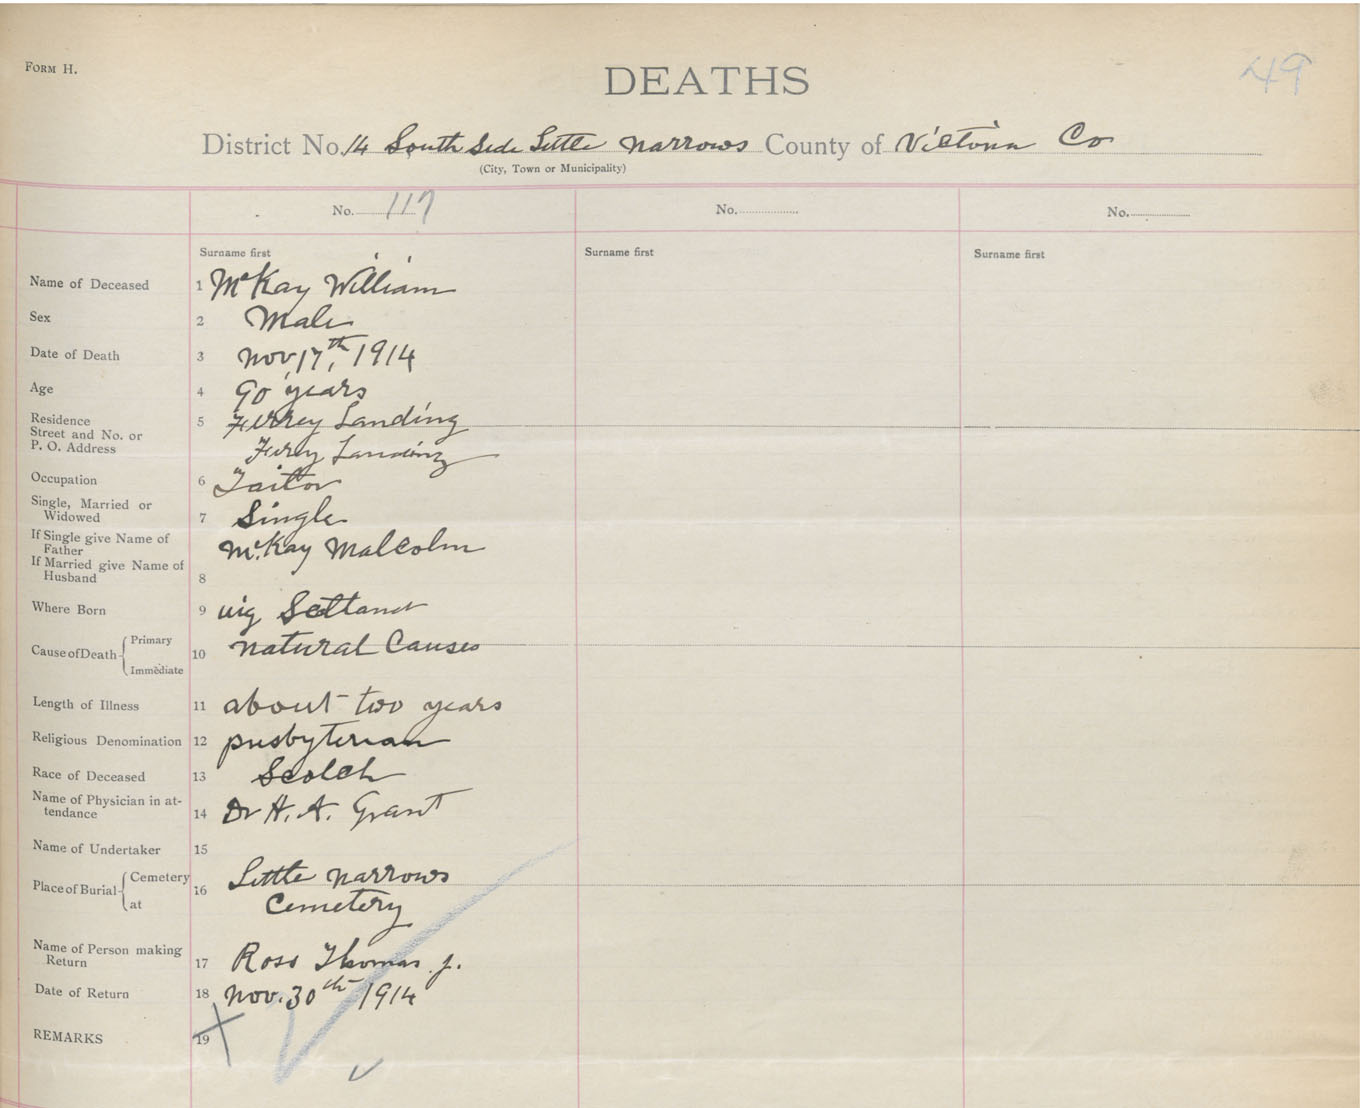 FORM H.
49
DEATHS
District No. 14 South Side Little Narrows County of Victoria Co
(City, Town or Municipality)
No. 117 No. No.
Surname first Surname first Surname first
Name of Deceased 1 McKay William
Sex 2 Male
Date of Death 3 Nov 17th, 1914
Age 4 90 years
Residence 5 Ferrey Landing
Street and No. or
P. O. Address Ferry Landing
Occupation 6 Tailor
Single, Married or
Widowed 7 Single
If Single give Name of
Father McKay Malcolm
If Married give Name of
Husband 8
Where Born 9 uig Scotland
Cause of Death Primary 10 natural Causes
Immediate
Length of Illness 11 about two years
Religious Denomination 12 presbyterian
Race of Deceased 13 Scotch
Name of Physician in at-
tendance 14 Dr H. A. Grant
Name of Undertaker 15
Place of Burial Cemetery 16 Little Narrows
at Cemetery
Name of Person making
Return 17 Ross Thomas J.
Date of Return 18 Nov. 30th 1914
REMARKS 19